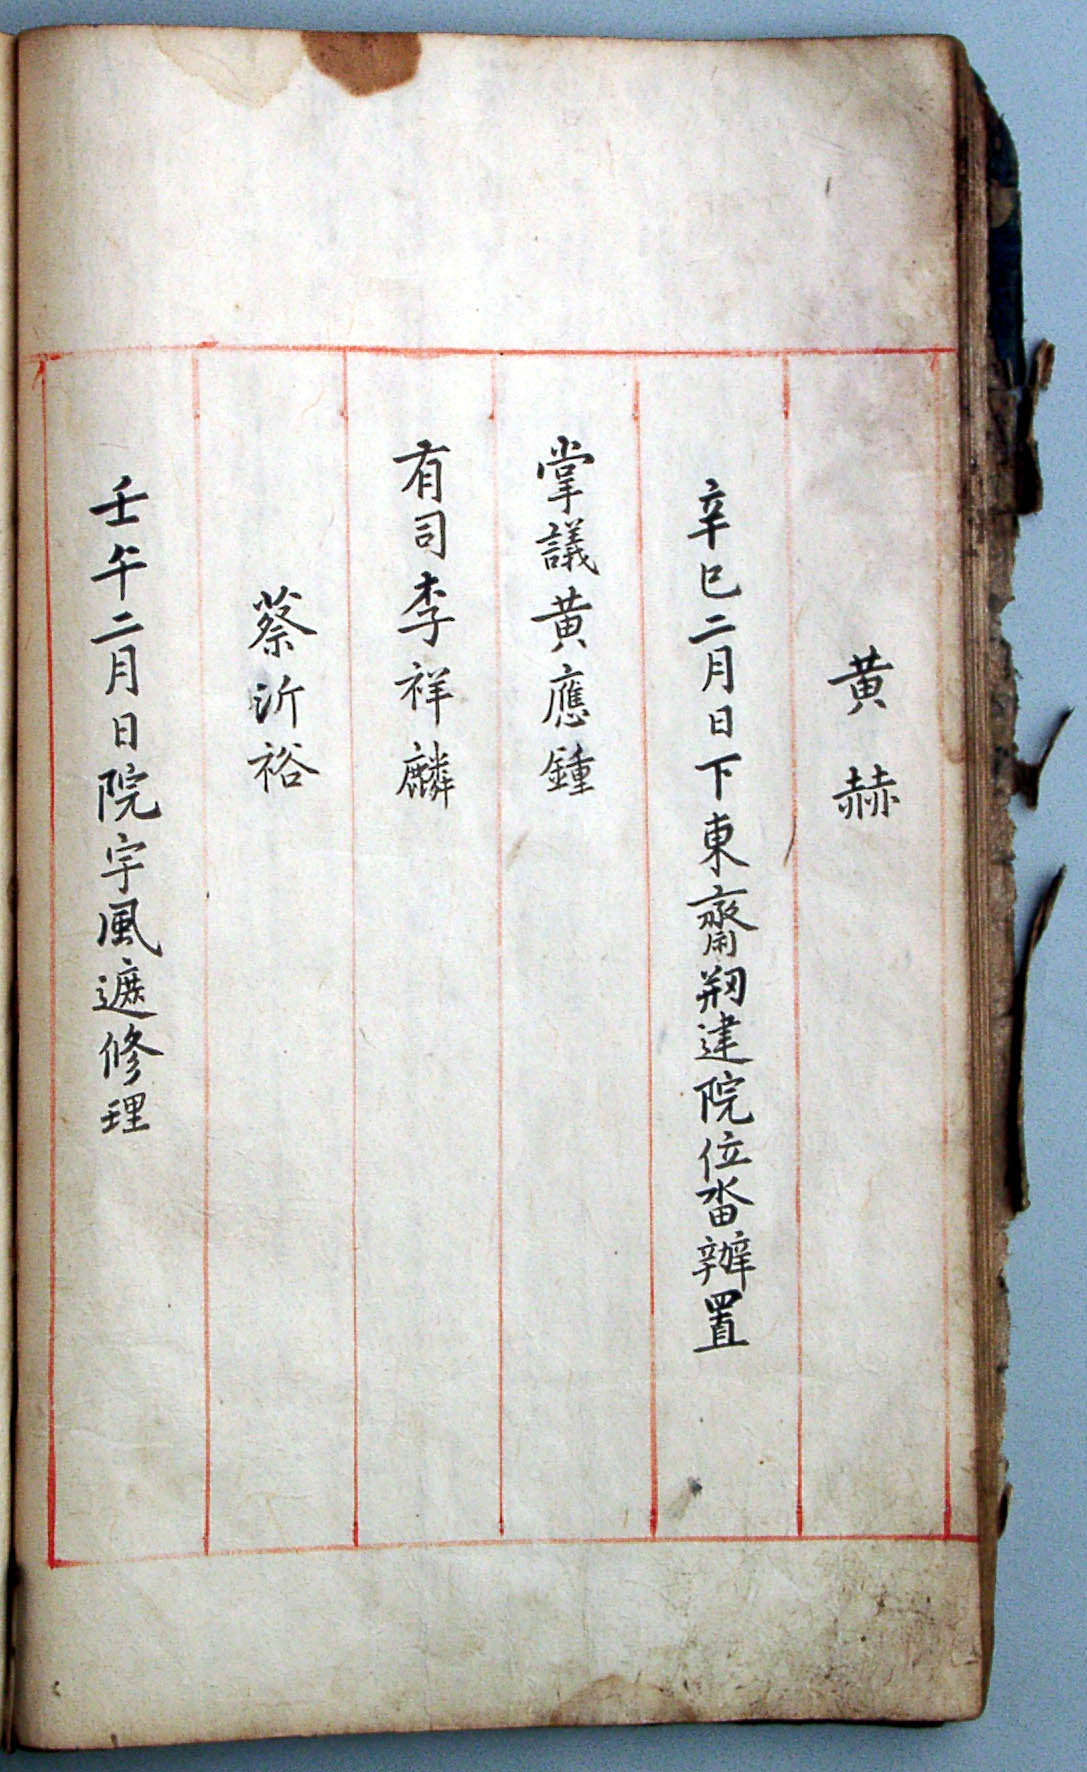 黄赫
辛巳二月日下東齋剏建院位畓辦置
掌議黄應鍾
有司李祥麟
蔡沂裕
壬午二月日院宇風遮修理